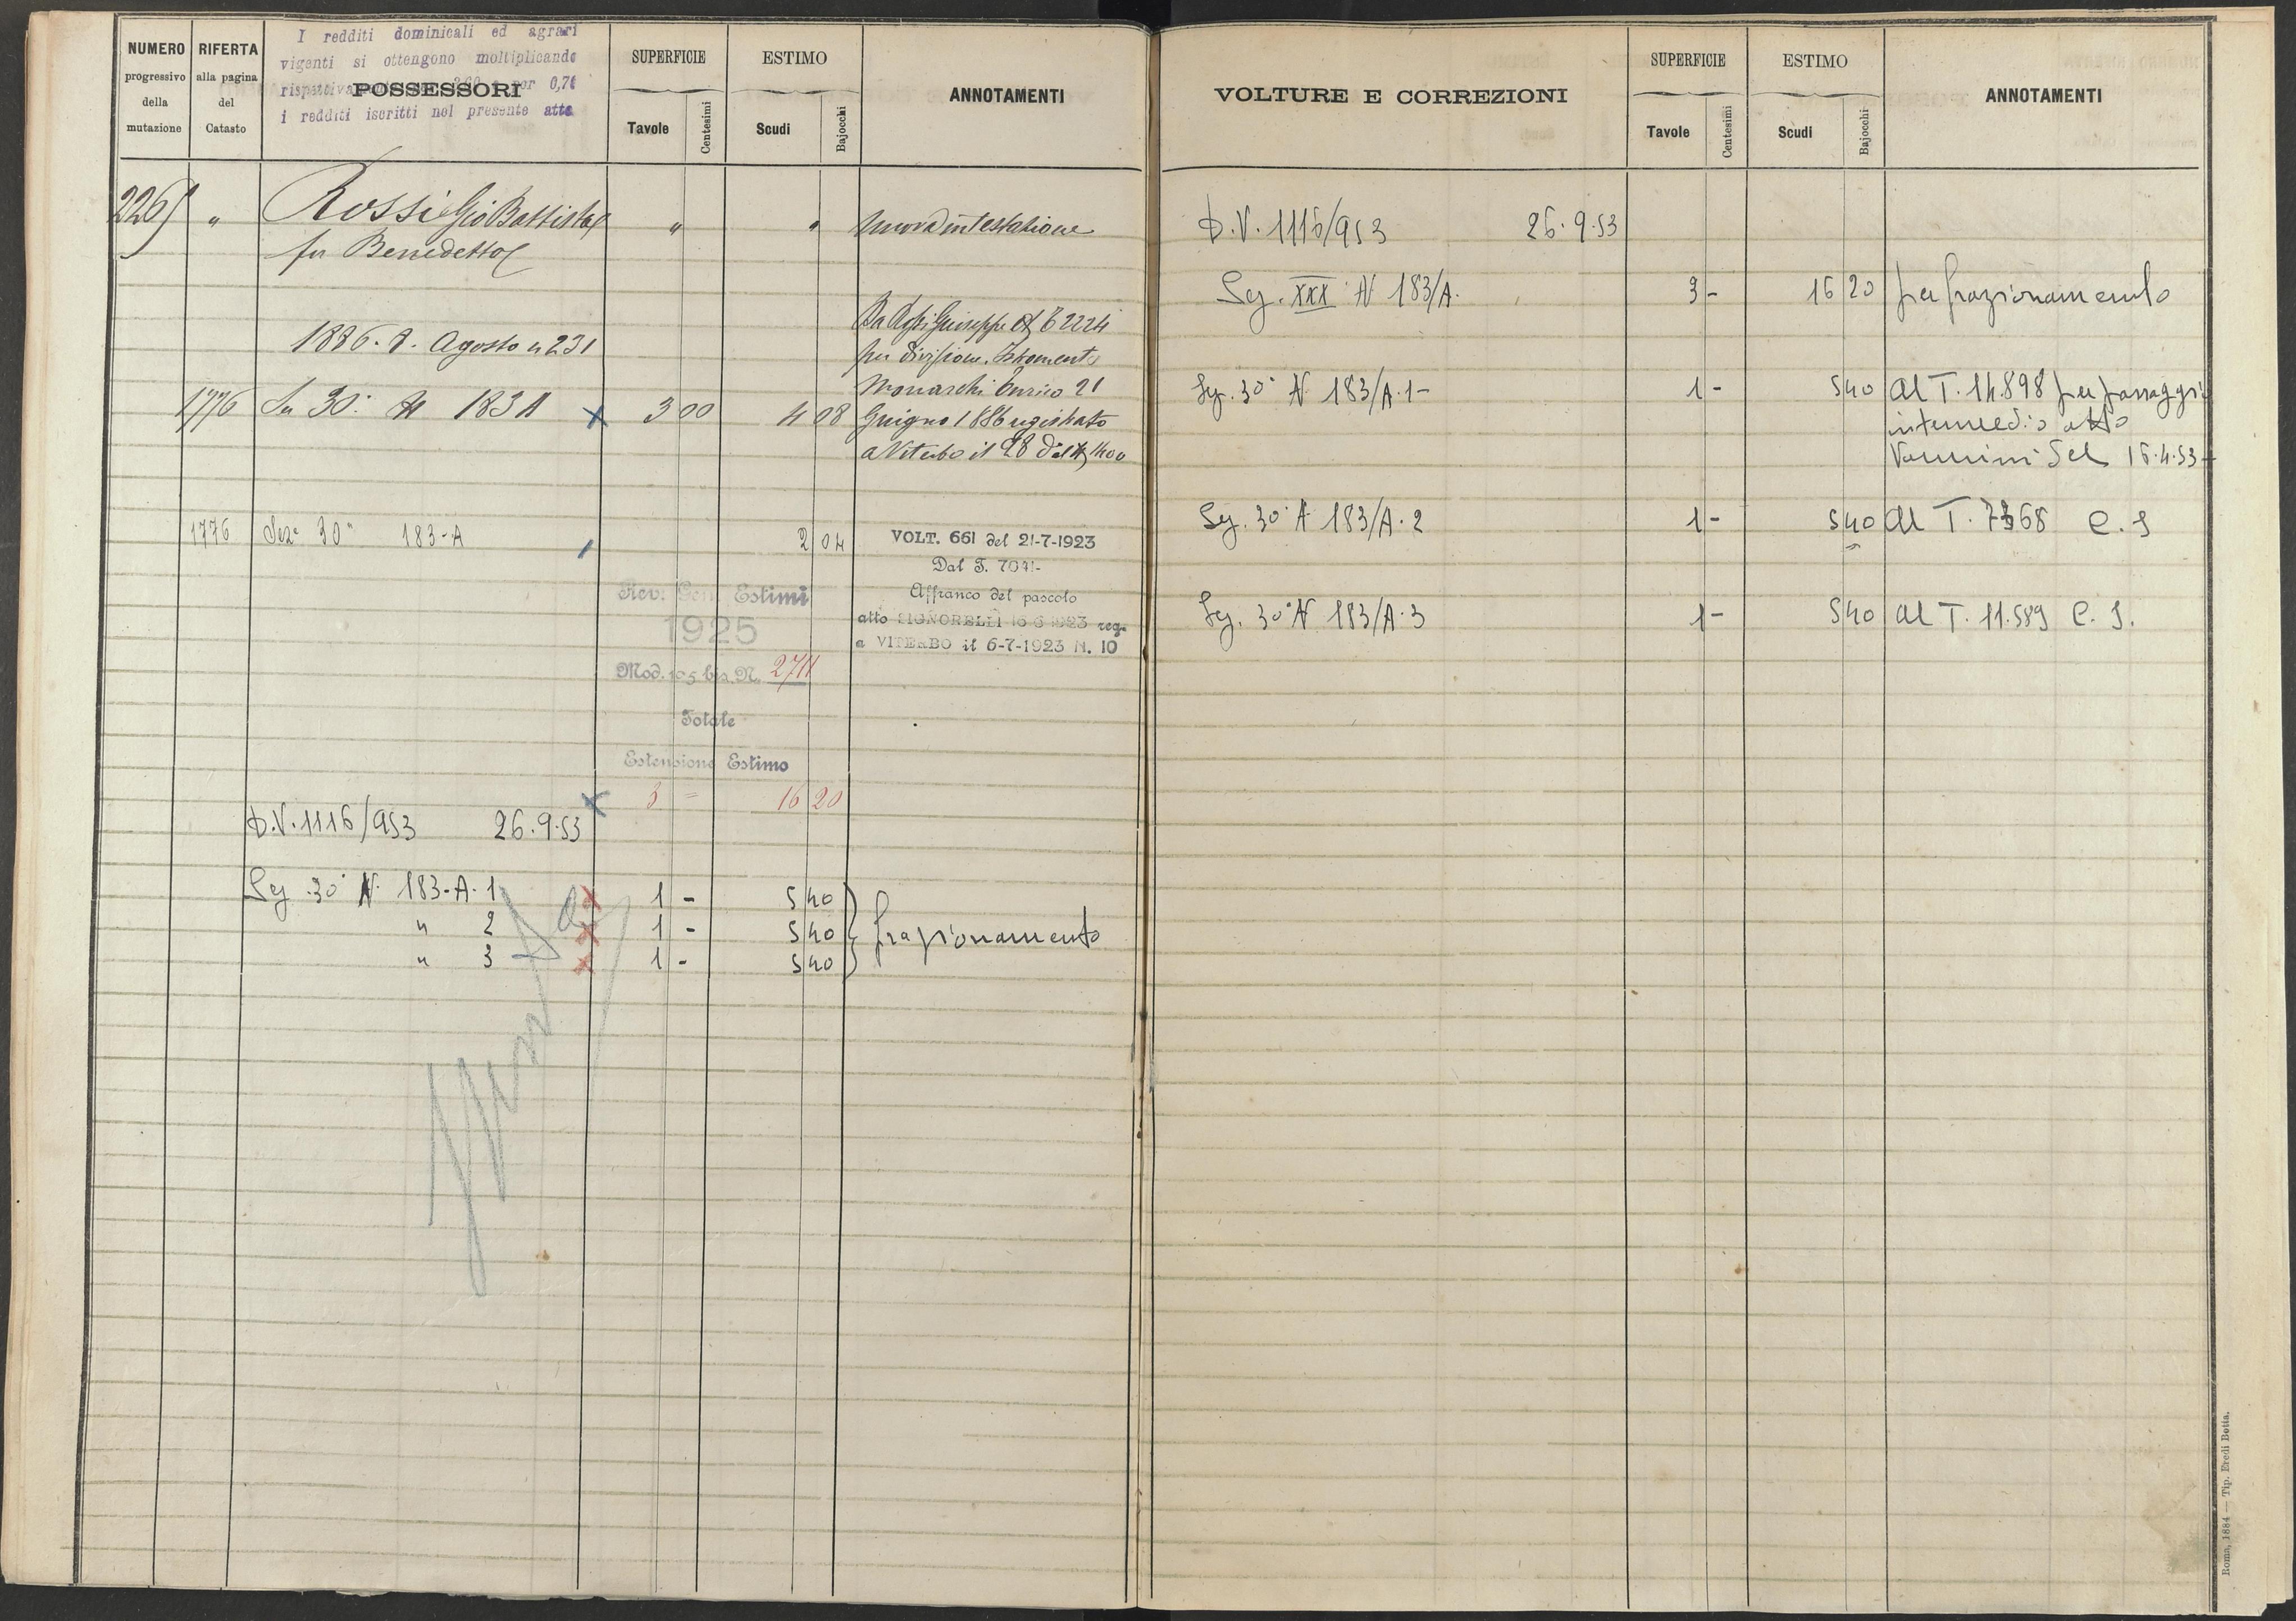 NUMERO progressivo della mutazione
RIFERTA alla pagina del Catasto
I redditi dominicali ed agrari
vigenti si ottengono moltiplicando
rispettivamente per 0,70
i redditi iscritti nel presente atto
POSSESSORI
SUPERFICIE
Tavole Centesimi
ESTIMO
Scudi Bajocchi
ANNOTAMENTI
2265 " Rossi Gio Battista " " Nuova intestazione
fu Benedetto
1886. 2. Agosto n 231
Da Rossi Giuseppe al 6 2224
per divisione. Istromento
Monarchi Enrico 21
1776 Sez 30° N 183 A 3 00 4 08 Giugno 1886 registrato
a Viterbo il 28 d° al N 1400
1776 Seze 30a 183-A 2 04 VOLT. 661 del 21-7-1923
Dal T. 7041-
Affranco del pascolo
atto SIGNORELLI 16 6 1923 reg.
a VITERBO il 6-7-1923 N. 10
Rev. Gen. Estimi
1925
Mod. 105 bis N. 2711
Totale
Estensione Estimo
3 = 16 20
D.V. 1116/953 26.9.53
Sez 30° N. 183-A.1 1 - 5 40
" 2 1 - 5 40 frazionamento
" 3 1 - 5 40
VOLTURE E CORREZIONI
SUPERFICIE
Tavole Centesimi
ESTIMO
Scudi Bajocchi
ANNOTAMENTI
D.V. 1116/953 26.9.53
Sez. XXX N 183/A. 3 - 16 20 per frazionamento
Sez. 30° N 183/A.1- 1 - 5 40 Al T. 14.898 per passaggio
intermedio atto
Vannini del 16.4.53
Sez. 30° N 183/A.2 1 - 5 40 Al T. 7368 C.S
Sez. 30° N 183/A.3 1 - 5 40 Al T. 11.589 C.S.
Roma, 1884 — Tip. Eredi Botta.